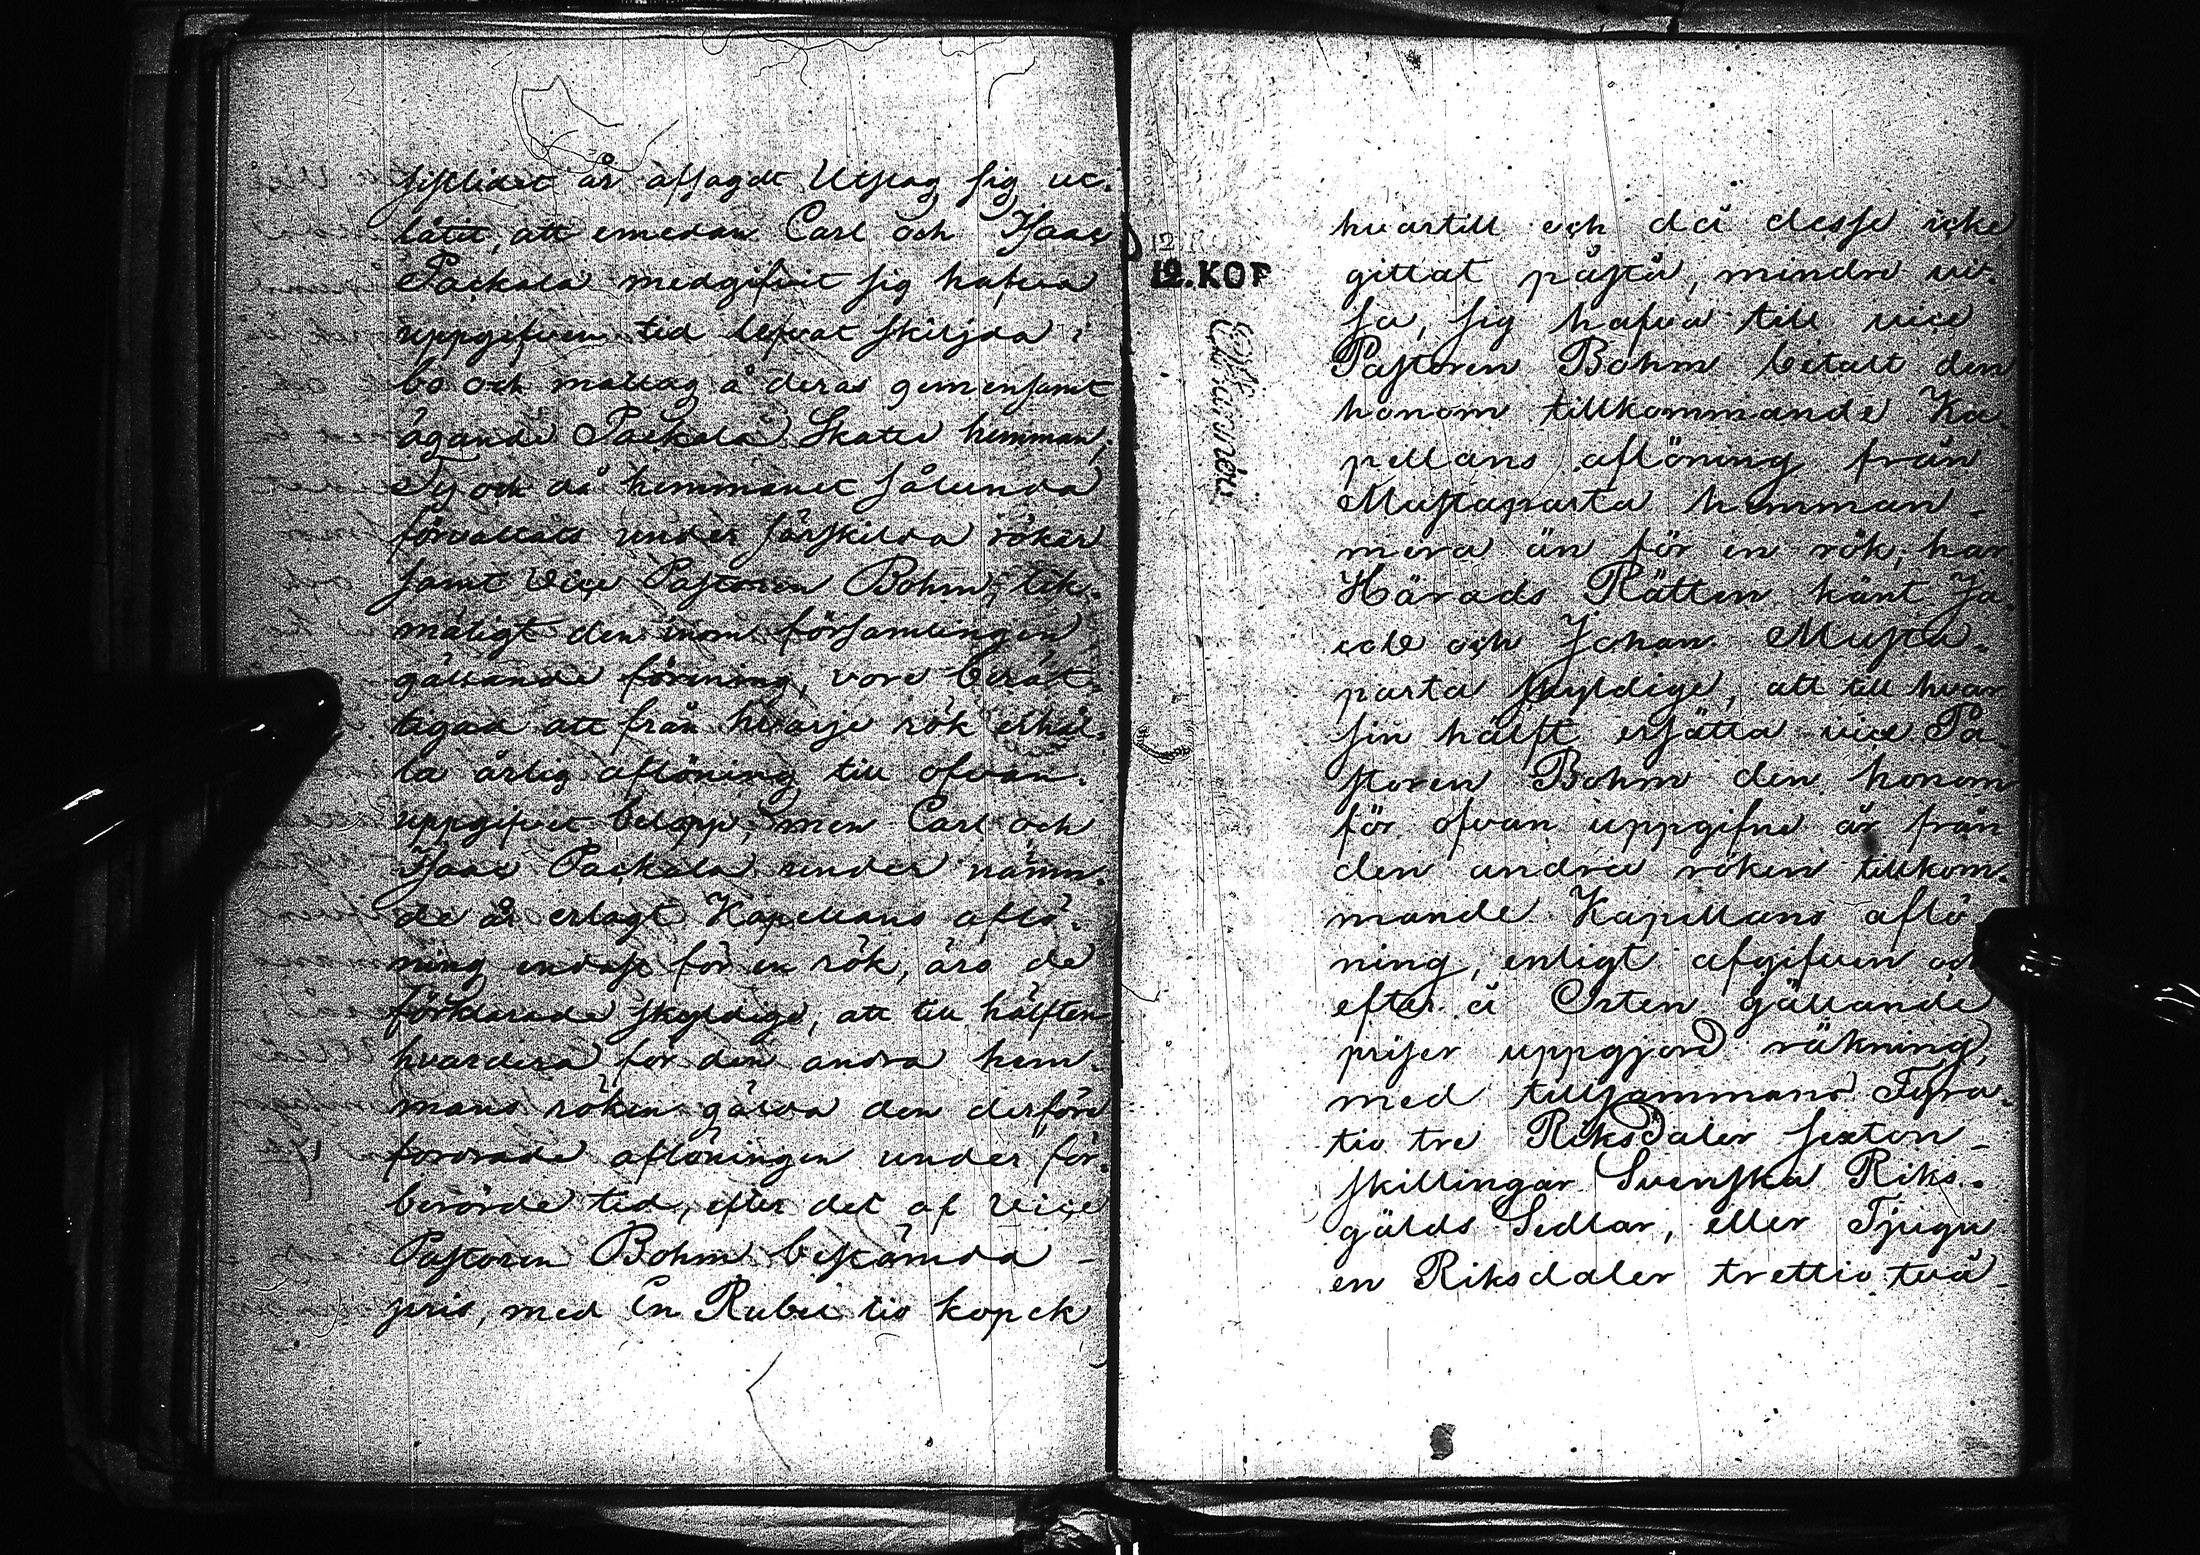 sistlidet år afsagdt Utslag sig ut-
låtit, att emedan Carl och Isaac
Packala medgifvit sig hafva
uppgifven tid lefvat skiljda i
bo och matlag å deras gemensamt
ägande Packala Skatte hemman;
Ty och då hemmanet sålunda
förvaltats under särskilda rökar
samt Vice Pastoren Bohm, lik-
mäligt den inom församlingen
gällande förening, vore berät-
tigad att från hvarje rök erhål-
la årlig aflöning till ofvan-
uppgifvit belopp, men Carl och
Isaac Packala under nämn-
de år erlagt Kapellans aflö-
ning endast för en rök, äro de
förklarade skyldige, att till hälften
hvardera för den andra hem-
mans röken gälda den derföre
fordrade aflöningen under för-
berörde tid, efter det af Vice
Pastoren Bohm bestämda
pris, med En Rubel tio kopek
12. KOP
hvartill och då desse icke
gittat påstå, mindre vi-
sa, sig hafva till vice
Pastoren Bohm betalt den
honom tillkommande Ka-
pellans aflöning från
Mustaparta hemman
mera än för en rök; har
Härads Rätten känt Ja-
cob och Johan Musta-
parta skyldige, att till hvar
sin hälft ersätta vice Pa-
storen Bohm den honom
för ofvan uppgifne år från
den andra röken tillkom-
mande Kapellans aflö-
ning, enligt afgifven och
efter å Orten gällande
priser uppgjord räkning,
med tillsammans Fyra-
tio tre Riksdaler sexton
skillingar Svenska Riks-
gälds Sedlar, eller Tjugu
en Riksdaler trettio två